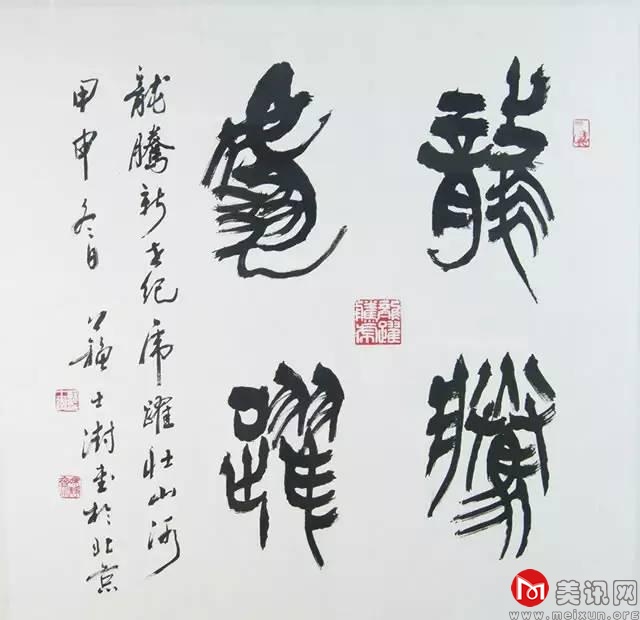 龍騰
虎躍
龍騰新世紀虎躍壯山河
甲申冬日蘇士澍書於北京
美讯网
www.meixun.org